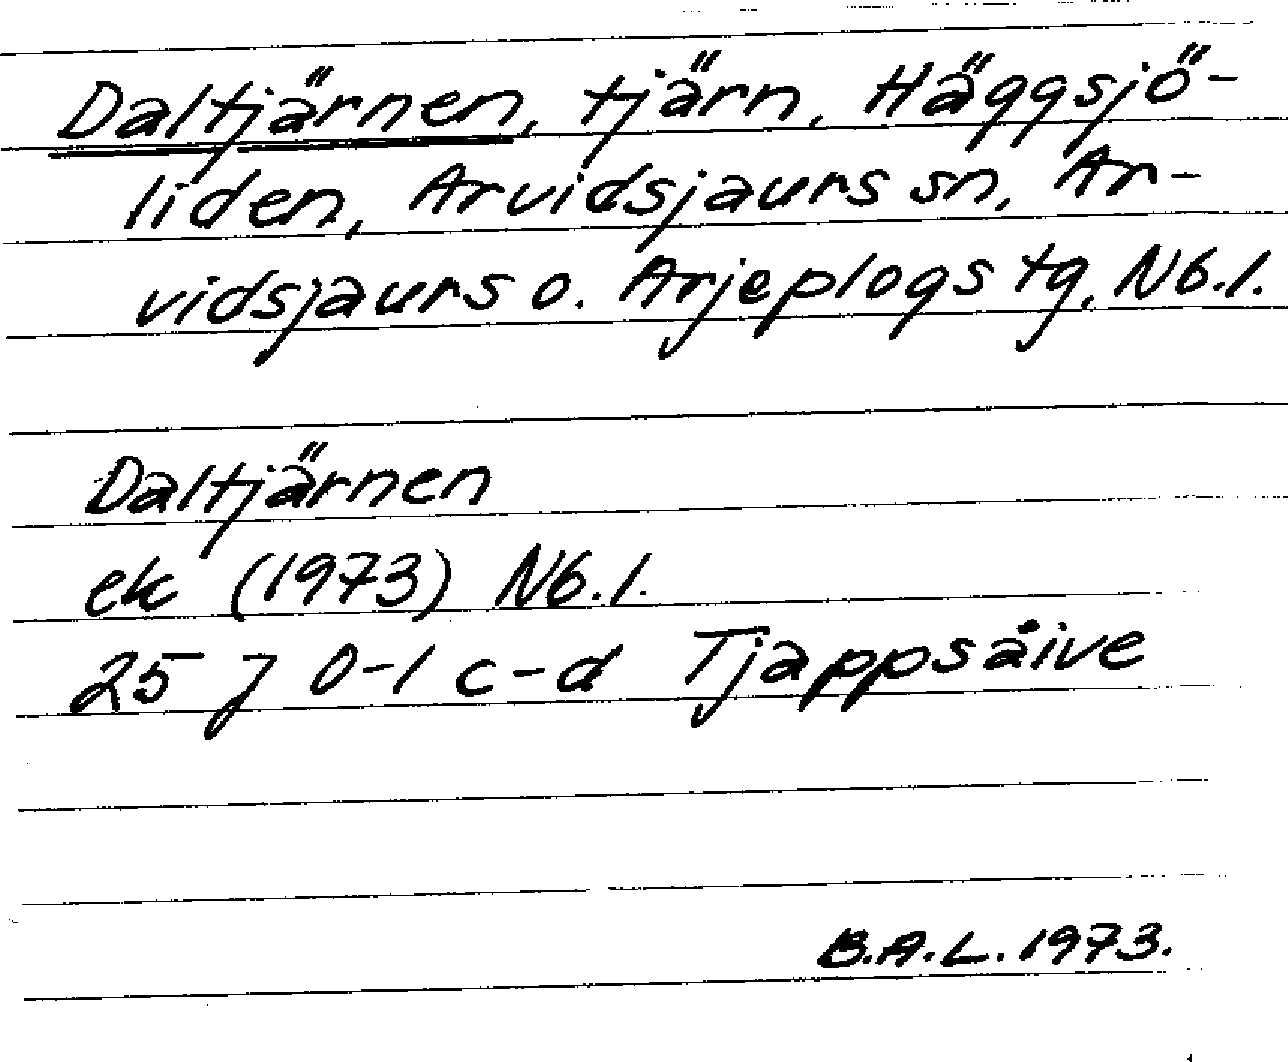 Daltjärnen, tjärn, Häggsjö-
liden, Arvidsjaurs sn, Ar-
vidsjaurs o. Arjeplogs tg, Nb.l.
Daltjärnen
ek (1973) Nb.l.
25 J 0-1 c-d Tjappsåive
B.A.L. 1973.